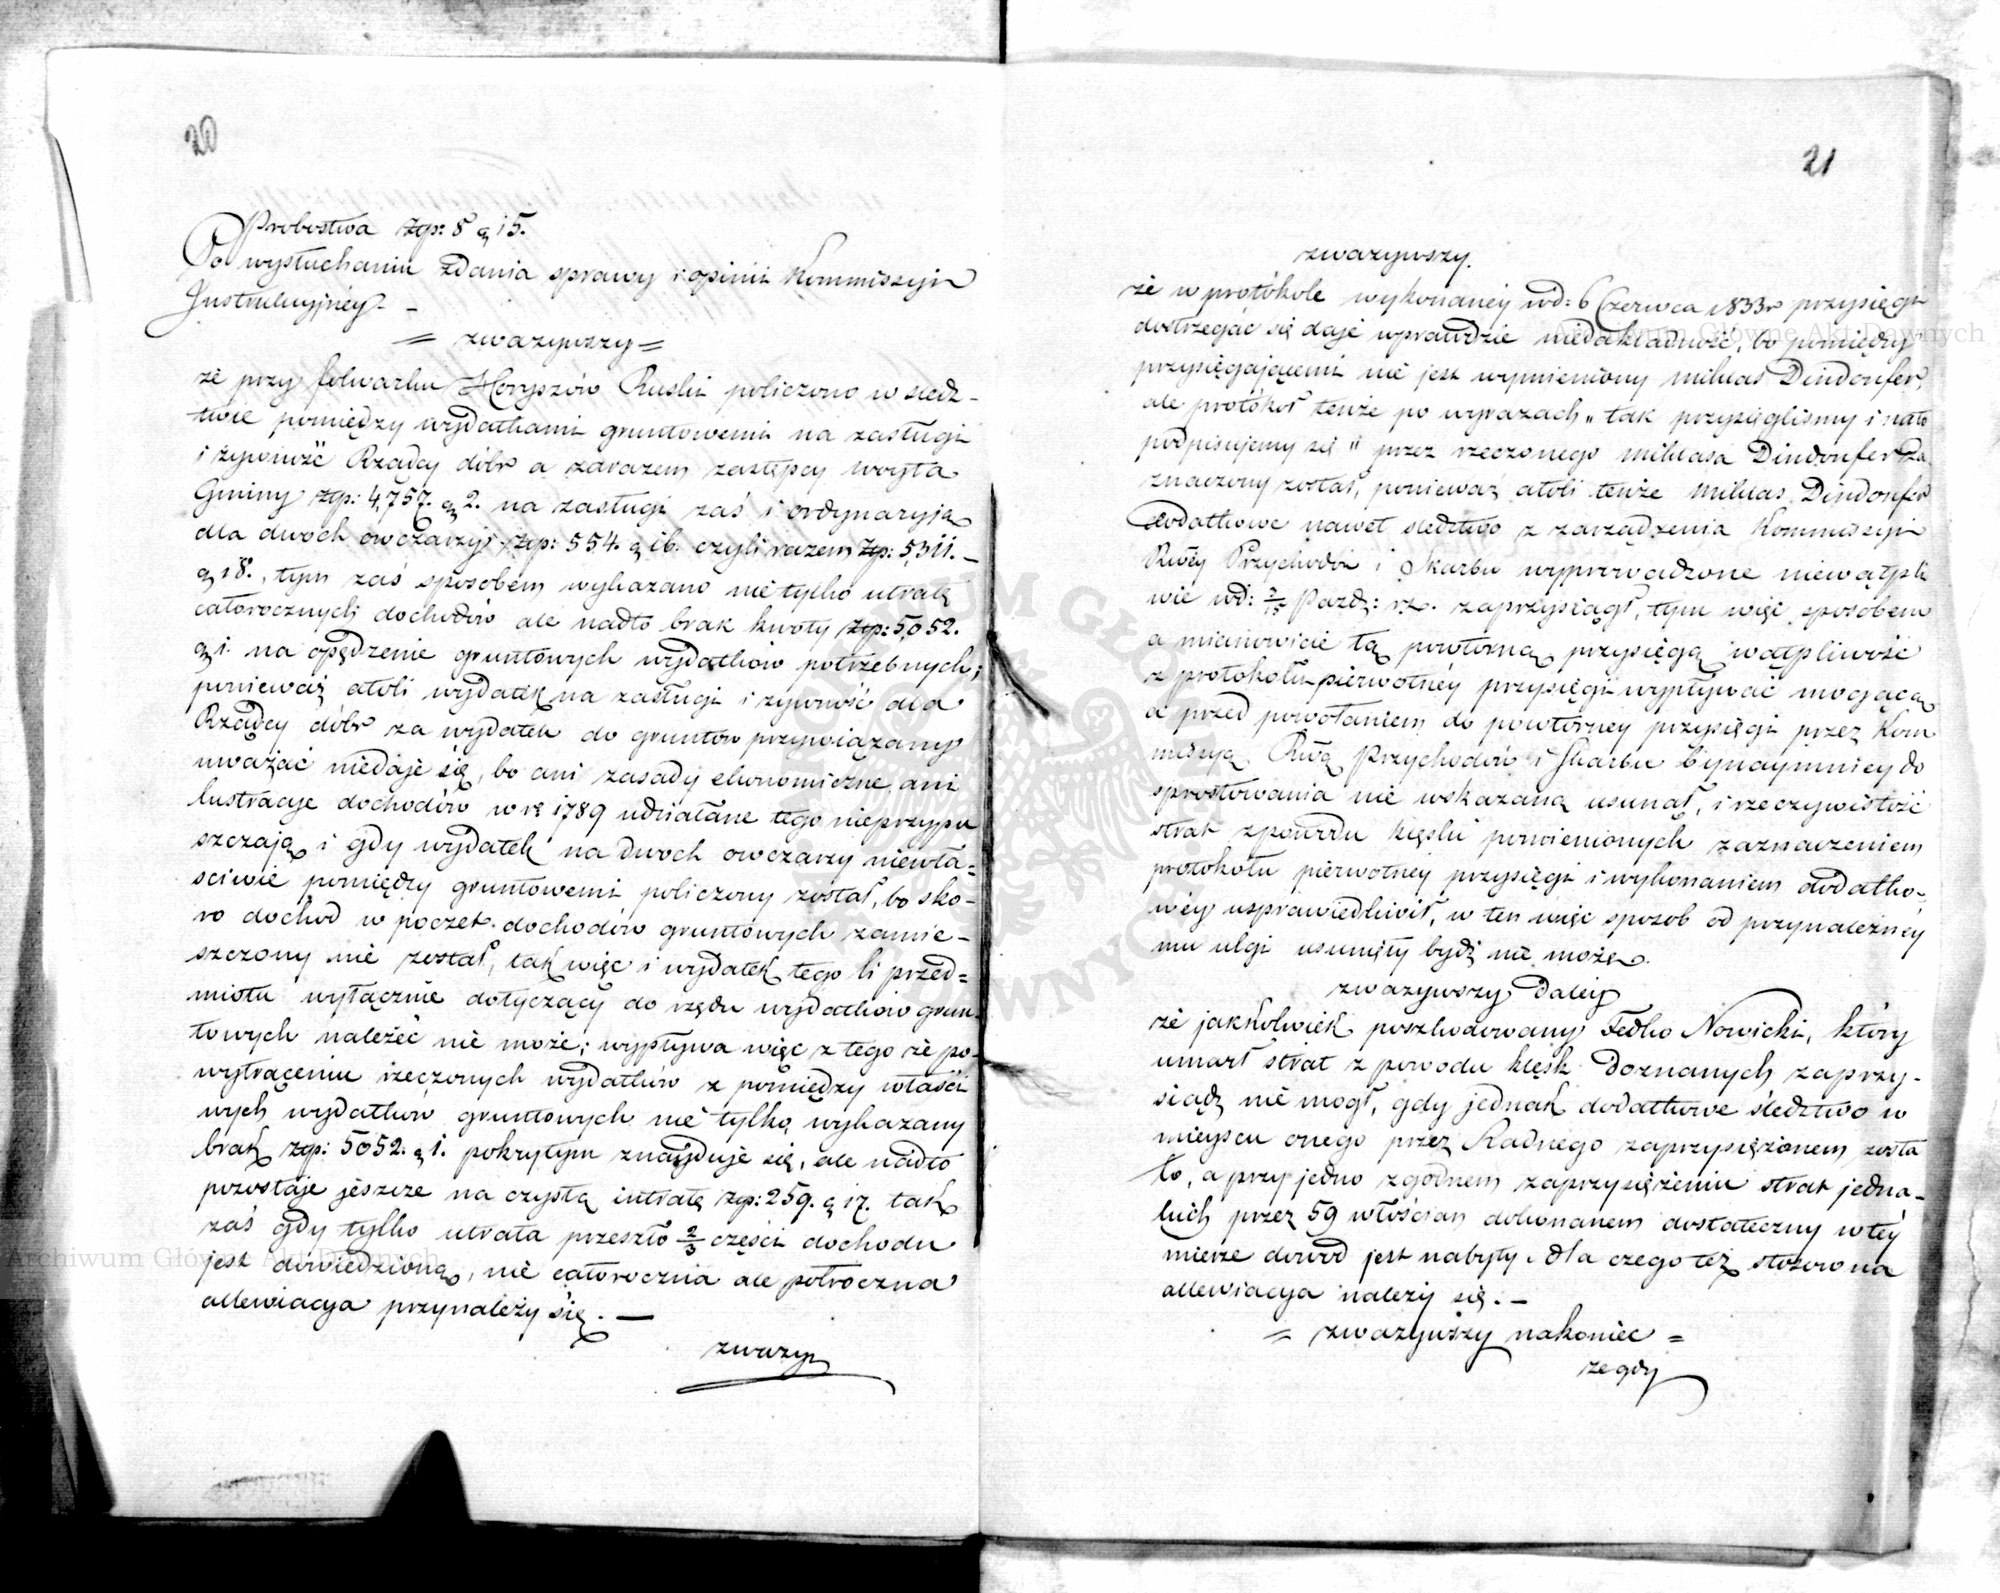 20
Probostwa Złp: 8 g 15.
Po wysłuchaniu zdania sprawy i opinii Kommissyi
Instrukcyjnéy. –
= zważywszy =
że przy folwarku Horyszów Ruski policzono w śledz-
twie pomiędzy wydatkami gruntowemi na zasługi
i żywność Rządcy dóbr a zarazem zastępcy woyta
Gminy złp: 4,757. g 2. na zasługi zaś i ordynaryją
dla dwoch owczarzy złp: 554. g 16. czyli razem złp: 5,311. –
g 18., tym zaś sposobem wykazano nietylko utratę
całorocznych dochodów ale nadto brak kwoty złp: 5052.
g 1. na opędzenie gruntowych wydatków potrzebnych;
ponieważ atoli wydatek na zasługi i żywność dla
Rządcy dóbr za wydatek do gruntów przywiązany
uważać niedaje się, bo ani zasady ekonomiczne ani
lustracye dochodów w r: 1789 udziałane tego nieprzypu
szczają i gdy wydatek na dwoch owczarzy niewła=
sciwie pomiędzy gruntowemi policzony został, bo sko-
ro dochod w poczet dochodów gruntowych zamie-
szczony nie został, tak więc i wydatek tego li przed=
miotu wyłącznie dotyczący do rzędu wydatków grun-
towych należéć nie może; wypływa więc z tego że po-
wytrąceniu rzeczonych wydatków z pomiędzy właści
wych wydatków gruntowych nie tylko wykazany
brak złp: 5052. g 1. pokrytym znayduje się, ale nadto
pozostaje jeszcze na czystą intratę złp: 259. g 17. tak
zaś gdy tylko utrata przeszło 2/3 części dochodu
jest dowiedzioną, nie całoroczna ale połroczna
allewiacya przynależy się. —
zważy
21
zważywszy.
że w protókole wykonanéy w d: 6 Czerwca 1833 r przysięgi
dostrzegać się daje wprawdzie niedokładność, bo pomiędzy
przysięgającemi nie jest wymieniony Mikłas Dindorfer,
ale protokoł tenże po wyrazach „tak przysięgliśmy i na to
podpisujemy się" przez rzeczonego Mikłasa Dindorfer za
znaczony został, ponieważ atoli tenże Mikłas Dindorfer
dodatkowe nawet śledztwo z zarządzenia Kommissyi
Rwéy Przychodów i Skarbu wyprowadzone niewątpli
wie w d: Paźdz: r. z. zaprzysiągł, tym więc sposobem
a mianowicie tą powtorną przysięgą wątpliwość
z protokołu pierwotnéy przysięgi wypływać mogącą
a przed powołaniem do powtorney przysięgi przez Kom
missyą Rwą Przychodów i Skarbu bynaymniey do
sprostowania nie wskazaną usunął, i rzeczywistość
strat z powodu klęski poniesionych zaznaczeniem
protokołu pierwotnéy przysięgi i wykonaniem dodatko-
wéy usprawiedliwił, w ten więc sposob od przynależnéy
mu ulgi usunięty bydź nie może.
zważywszy daléy
że jakkolwiek poszkodowany Fedko Nowicki, który
umarł strat z powodu klęsk doznanych zaprzy-
siądz nie mogł, gdy jednak dodatkowe śledztwo w
mieyscu onego przez Radnego zaprzysiężonem zosta
ło, a przy jedno zgodnem zaprzysiężeniu strat jedna-
kich przez 59 włościan dokonanem dostateczny w téy
mierze dowod jest nabyty. dla czego też stosowna
allewiacya należy się. –
= zważywszy nakoniec =
że gdy